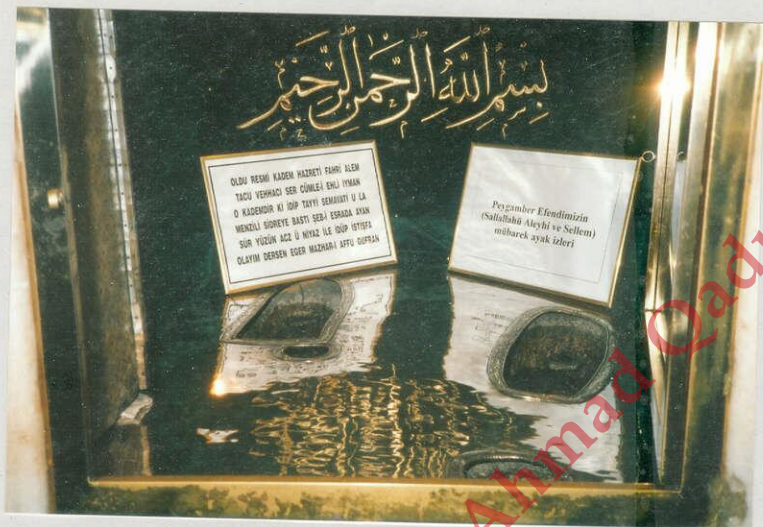 بسم الله الرحمن الرحيم
OLDU RESMİ KADEM HAZRETİ FAHRİ ALEM
TACU VEHHACI SER CÜMLEİ EHLİ IYMAN
O KADEMDİR Kİ İDİP TAYYİ SEMAVATI U LA
MENZİLİ SİDREYE BASTI ŞEB-İ ESRADA AYAN
SÜR YÜZÜN ACZ Ü NİYAZ İLE İDÜP İSTİŞFA
OLAYIM DERSEN EGER MAZHAR-I AFFU GUFRAN
Peygamber Efendimizin
(Sallallahü Aleyhi ve Sellem)
mübarek ayak izleri
Ahmad